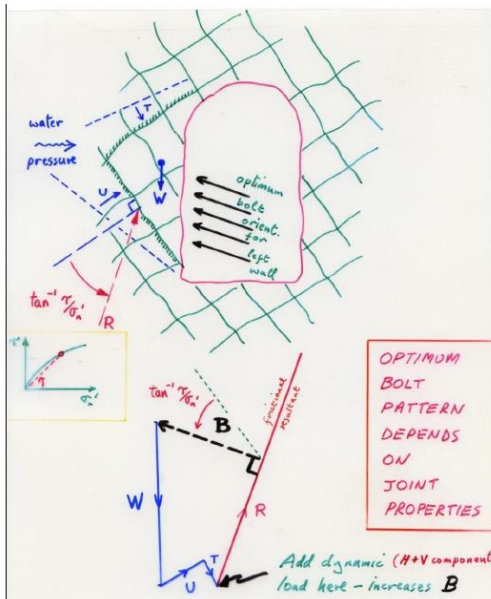 water
pressure
T
U
W
optimum
bolt
orient.
for
left
wall
tan⁻¹ τ/σn'
R
τ
σn'
tan⁻¹ τ/σn'
B
frictional
resultant
W
R
U
T
OPTIMUM
BOLT
PATTERN
DEPENDS
ON
JOINT
PROPERTIES
Add dynamic (H+V component
load here – increases B